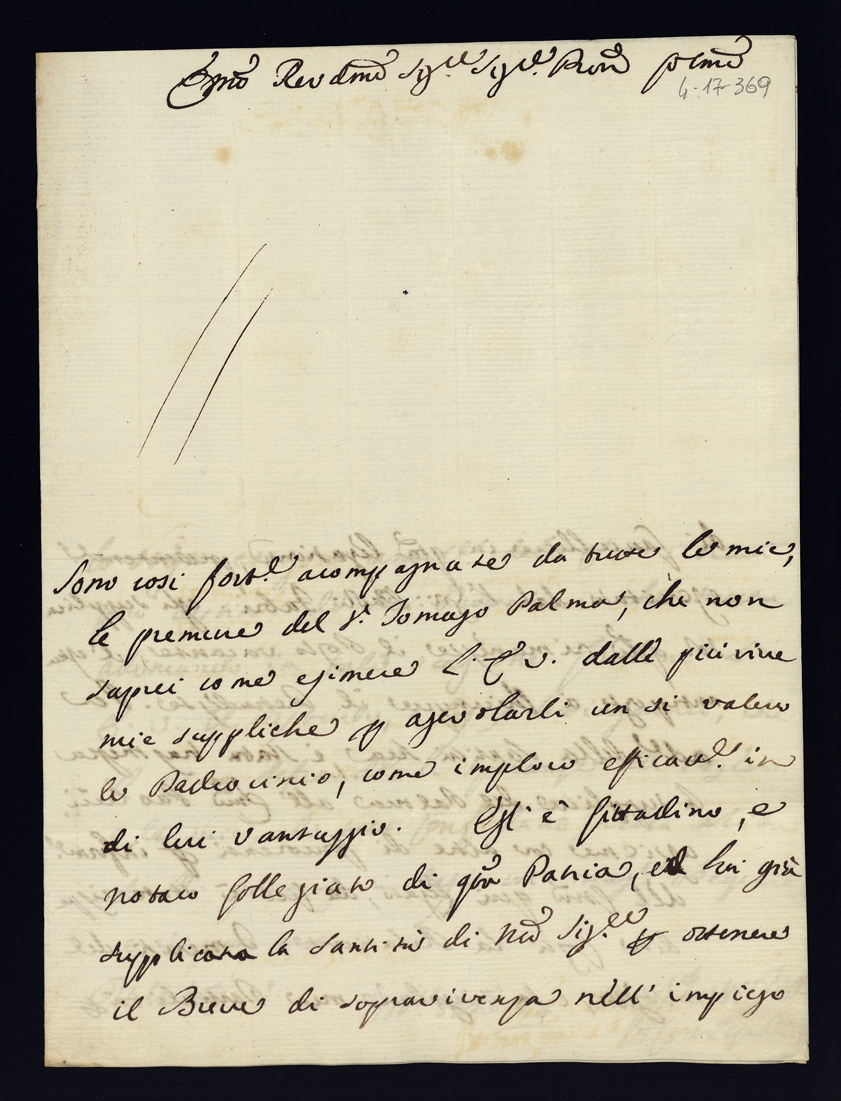 Emo Revdmo Sigre Sigre Pron Colmo
4-17-369
Sono così forte acompagnate da tutte le mie,
le premure del Sr. Tomaso Palma, che non
saprei come esimere l'E. V. dalle più vive
mie suppliche p agevolarli un sì valevo
le Padrocinio, come imploro efficace. in
di lui vantaggio. Egli è Cittadino, e
notaro Collegiato di qta Patria, ed hà già
supplicata la Santità di Nro Sigre p ottenere
il Breve di sopravivenza nell' impiego